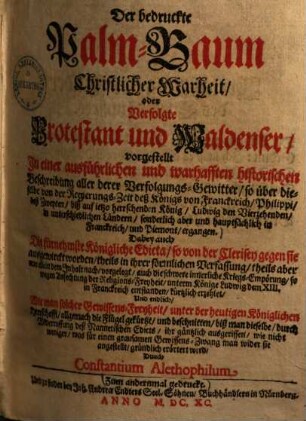 Der bedruckte
Palm-Baum
Christlicher Warheit/
oder
Verfolgte
Protestant und Waldenser/
vorgestellt
In einer ausführlichen und warhafften historischen
Beschreibung aller derer Verfolgungs-Gewitter/ so über die-
selbe von der Regierungs-Zeit deß Königs von Franckreich/ Philippi/
deß Zweyten/ biß auf jetzo herrschenden König/ Ludwig den Vierzehenden/
in unterschiedlichen Ländern/ sonderlich aber und hauptsächlich in
Franckreich/ und Piemont/ ergangen.
Dabey auch
Die fürnehmste Königliche Edicta/ so von der Clerisey gegen sie
ausgewürckt worden/ theils in ihrer förmlichen Verfassung/ theils aber
nach dem Inhalt
in Franckreich entstanden/ kürzlich erzehlet/
Und endlich/
Wie man solcher Gewissens-Freyheit/ unter der heutigen Königlichen
allgemach die Flügel gekürtzt/ und beschnitten/ biß man dieselbe/ durch
deß Nantesischen Edicts/ ihr gäntzlich ausgerissen/ wie nicht
weniger/ was für einen grausamen Gewissens-Zwang man wider sie
angestellt/ gründlich erörtert wird/
Durch
Constantium Alethophilum.
Zum andernmal gedruckt.
Und zu finden bey Joh. Andreä Endters Seel. Söhnen/ Buchhändlern in Nürnberg.
ANNO M. DC. XC.